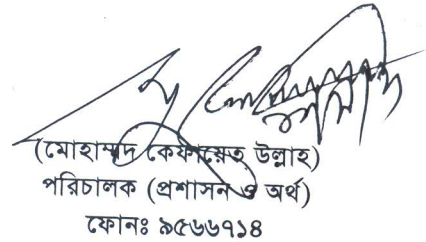 (মোহাম্মদ কেফায়েত উল্লাহ)
পরিচালক (প্রশাসন ও অর্থ)
ফোনঃ ৯৫৬৬৭১৪